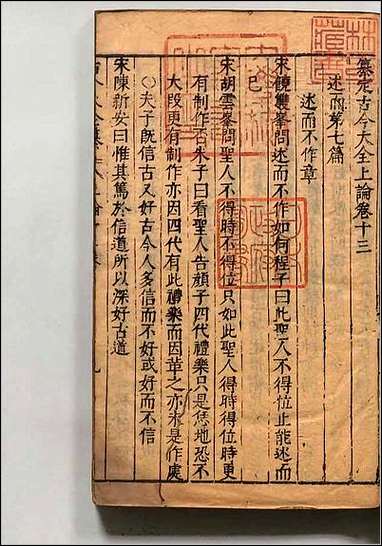 纂定古今大全上論卷十三
述而第七篇
述而不作章
宋饒雙峯問述而不作如何程子曰此聖人不得位止能述而
已
宋胡雲峯問聖人不得時不得位只如此聖人得時得位時更
有制作否朱子曰看聖人告顏子四代禮樂只是恁地恐不
大段更有制作亦因四代有此禮樂而因革之亦未是作處
○夫子旣信古又好古今人多信而不好或好而不信
宋陳新安曰惟其篤於信道所以深好古道